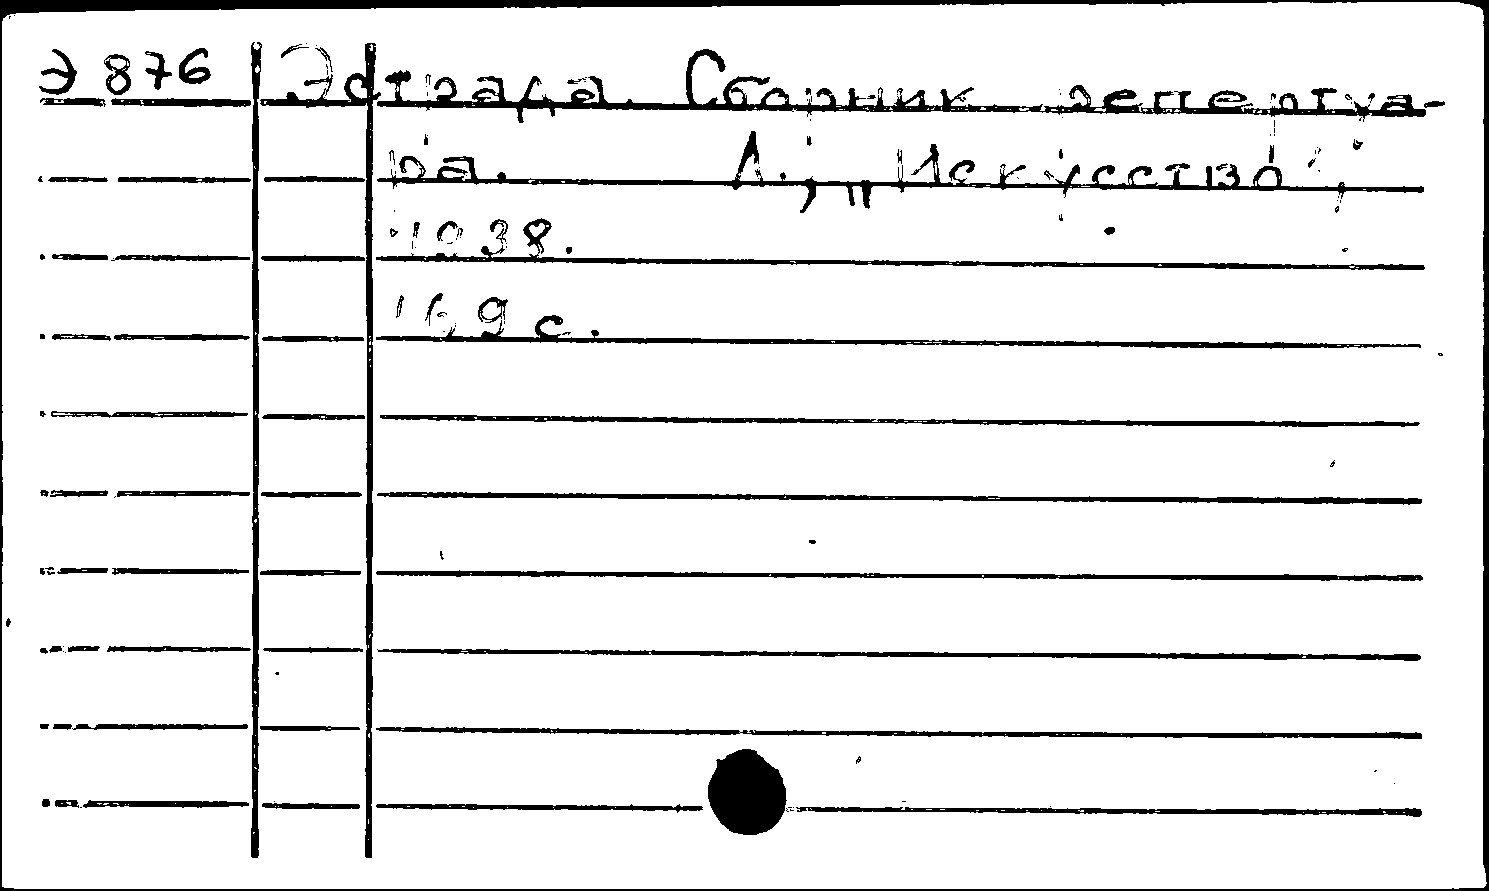 Э 876 Эстрада. Сборник репертуа-
ра. Л., „Искусство",
1938.
169 с.